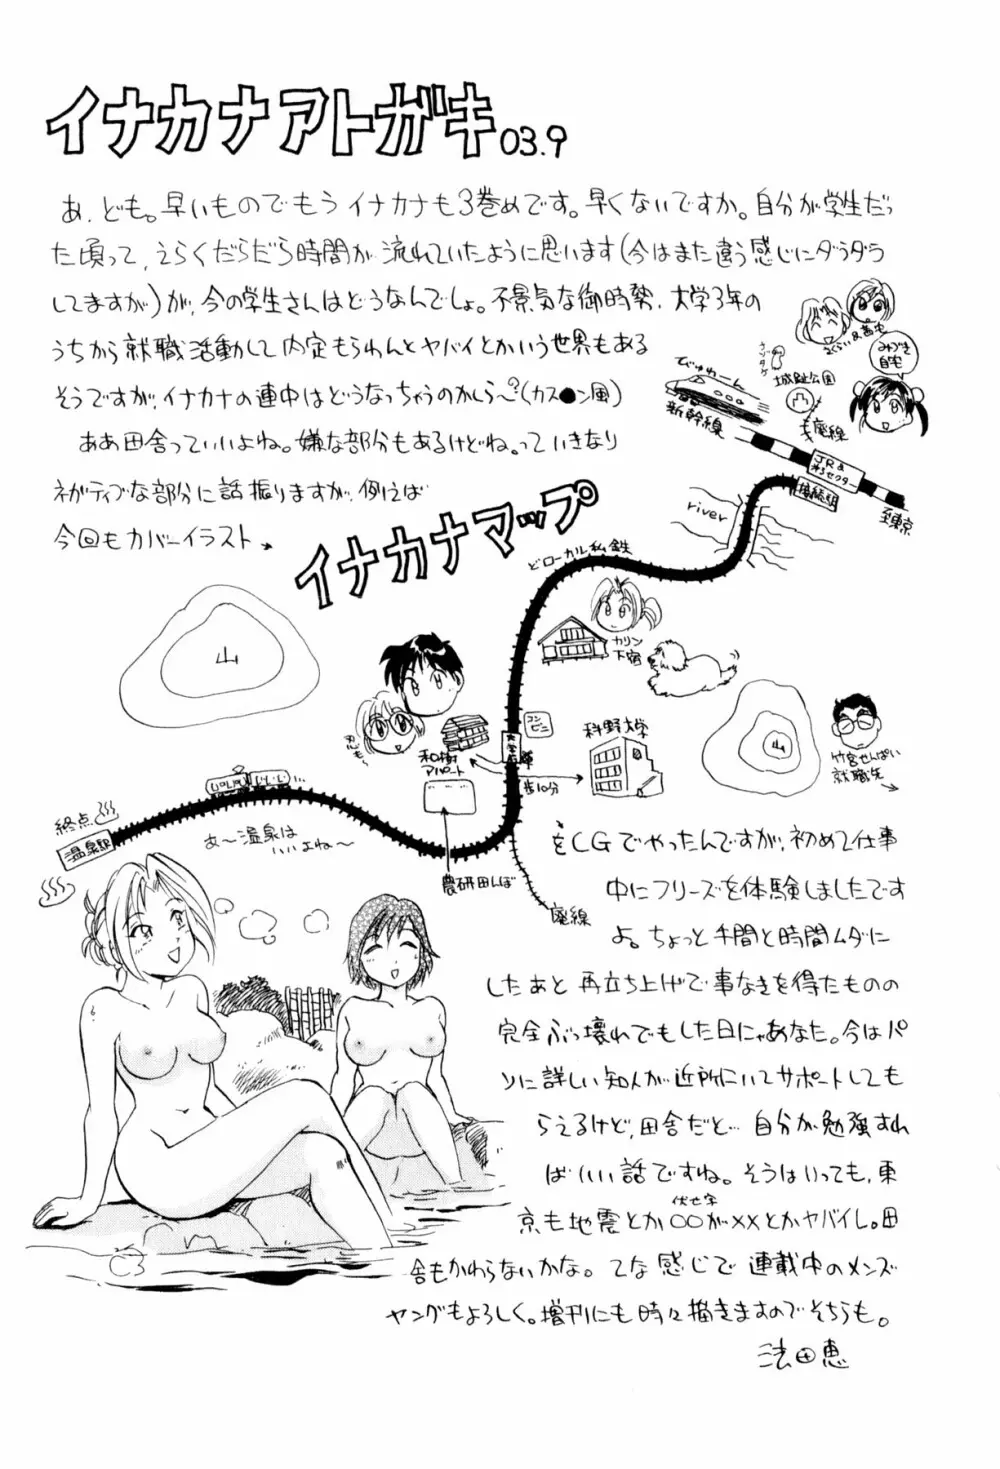 イナカナアトガキ 03.9
あ、ども。早いものでもうイナカナも3巻めです。早くないですか。自分が学生だっ
た頃って、えらくだらだら時間が流れていたように思います(今はまた違う感じにダラダラ
してますが)が、今の学生さんはどうなんでしょ。不景気な御時勢、大学3年の
うちから就職活動して内定もらわんとヤバイとかいう世界もある
そうですが、イナカナの連中はどうなっちゃうのかしら〜?(カス●ン風)
ああ田舎っていいよね。嫌な部分もあるけどね。っていきなり
ネガティブな部分に話振りますが、例えば
今回もカバーイラスト
イナカナマップ
さくらい&高中
みづき
自宅
城趾公園
びゅわーん
新幹線
廃線
JR&
第3セクター
接続駅
至東京
river
どローカル私鉄
カリン
下宿
山
コンビニ
科野大学
和樹
アパート
歩10分
山
竹宮せんぱい
就職先
終点
温泉駅
あ〜温泉は
いいよね〜
農研田んぼ
廃線
をCGでやったんですが、初めて仕事
中にフリーズを体験しましたです
よ。ちょっと手間と時間ムダに
したあと再立ち上げで事なきを得たものの
完全ぶっ壊れでもした日にゃあなた。今はパ
ソに詳しい知人が近所にいてサポートしても
らえるけど、田舎だと…自分が勉強すれ
ばいい話ですね。そうはいっても、東
伏せ字
京も地震とか○○が××とかヤバイし。田
舎もかわらないかな。てな感じで連載中のメンズ
ヤングもよろしく。増刊にも時々描きますのでそちらも。
法田恵